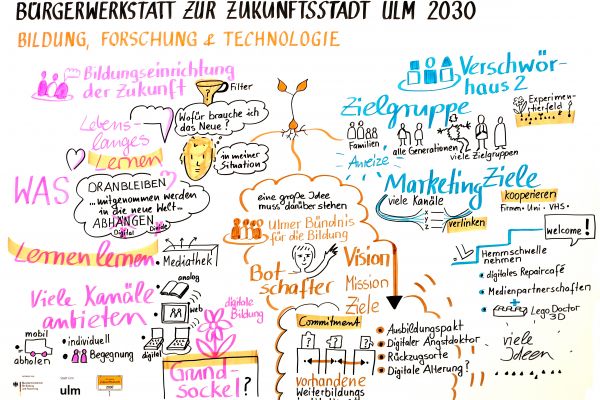 BÜRGERWERKSTATT ZUR ZUKUNFTSSTADT ULM 2030
BILDUNG, FORSCHUNG & TECHNOLOGIE
Bildungseinrichtung
der Zukunft
?
Filter
Wofür brauche ich
das Neue?
in meiner
Situation
Lebens-
langes
Lernen
WAS
DRANBLEIBEN
...mitgenommen werden
in die neue Welt...
ABHÄNGEN
Digital Divide
Lernen lernen
Mediathek
Viele Kanäle
anbieten
analog
web
digital
digitale
Bildung
mobil
abholen
individuell
Begegnung
Grund-
sockel?
ulm
eine große Idee
muss darüber stehen
Ulmer Bündnis
für die Bildung
Bot
schafter
Vision
Mission
Ziele
Commitment
?
?
vorhandene
Weiterbildungs
Ausbildungspakt
Digitaler Angstdoktor
Rückzugsorte
Digitale Alterung?
Verschwör-
haus 2
Zielgruppe
Experimen-
tierfeld
Familien
alle Generationen
viele Zielgruppen
Anreize
Marketing Ziele
viele Kanäle
verlinken
kooperieren
Firmen · Uni · VHS ·
welcome!
Hemmschwelle
nehmen
digitales Repaircafé
Medienpartnerschaften
Lego Doctor
3D
viele
Ideen